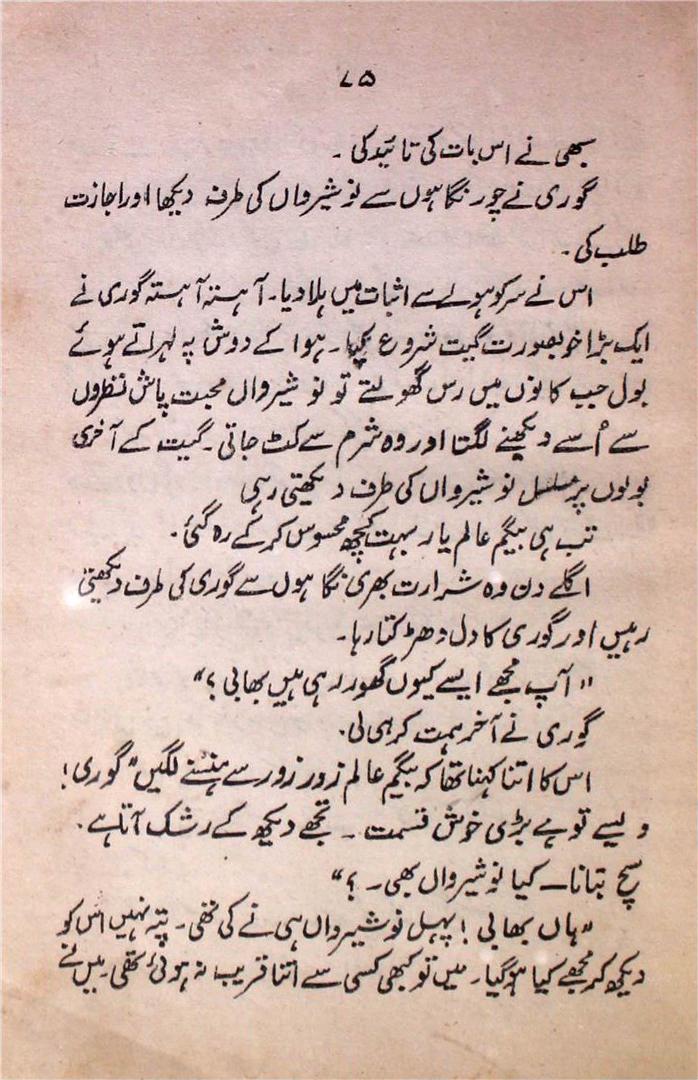 ۷۵
سبھی نے اس بات کی تائید کی ۔
گوری نے چور نگاہوں سے نوشیرواں کی طرف دیکھا اور اجازت
طلب کی ۔
اس نے سر کو ہولے سے اثبات میں ہلا دیا۔ آہستہ آہستہ گوری نے
ایک بڑا خوبصورت گیت شروع کیا۔ ہوا کے دوش پہ لہراتے ہوئے
بول جب کانوں میں رس گھولتے تو نوشیرواں محبت پاش نظروں
سے اُسے دیکھنے لگتا اور وہ شرم سے کٹ جاتی ۔ گیت کے آخری
بولوں پر مسلسل نوشیرواں کی طرف دیکھتی رہی
تب ہی بیگم عالم یار بہت کچھ محسوس کر کے رہ گئی۔
اگلے دن وہ شرارت بھری نگاہوں سے گوری کی طرف دیکھتی
رہیں اور گوری کا دل دھڑکتا رہا۔
"آپ مجھے ایسے کیوں گھور رہی ہیں بھابی ؟"
گوری نے آخر ہمت کر ہی لی۔
اس کا اتنا کہنا تھا کہ بیگم عالم زور زور سے ہنسنے لگیں "گوری!
ویسے تو ہے بڑی خوش قسمت ۔ تجھے دیکھ کے رشک آتا ہے ۔
سچ بتانا ــ کیا نوشیرواں بھی ۔ ؟"
"ہاں بھابی ! پہل نوشیرواں ہی نے کی تھی ۔ پتہ نہیں اس کو
دیکھ کر مجھے کیا ہو گیا ۔ میں تو کبھی کسی سے اتنا قریب نہ ہوئی تھی ۔ میں نے